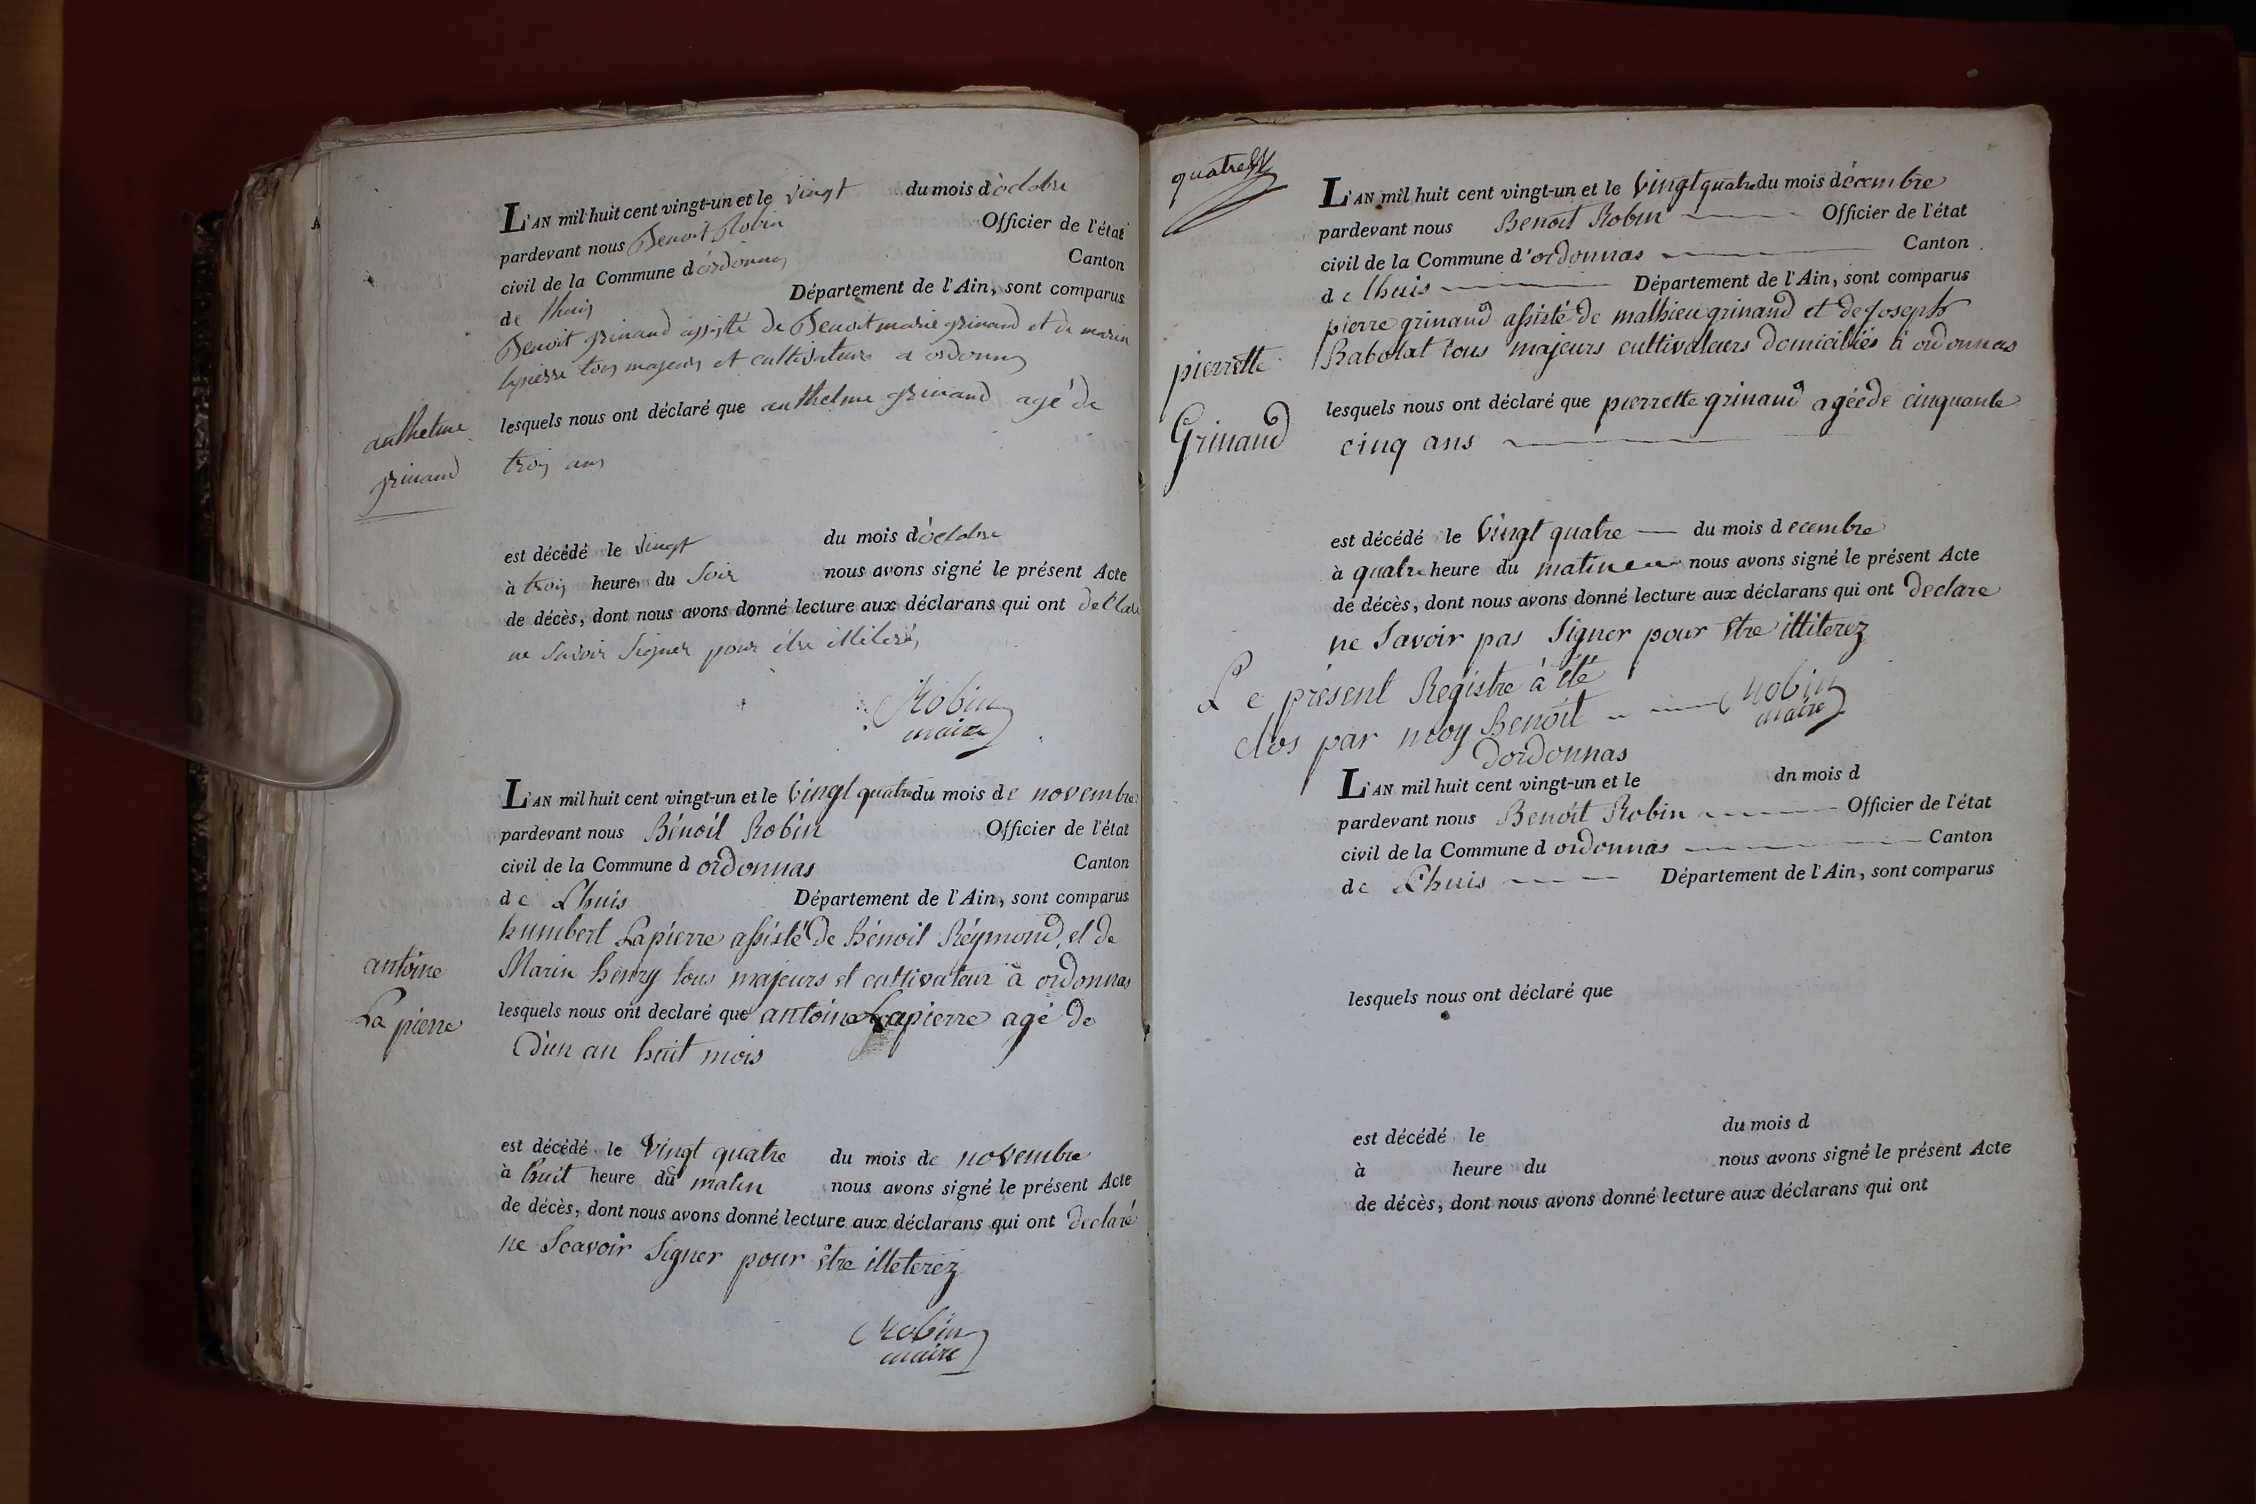 L'AN mil huit cent vingt-un et le vingt du mois d'octobre
pardevant nous Benoit Robin Officier de l'état
civil de la Commune d'ordonnas Canton
de lhuis Département de l'Ain, sont comparus
Benoit grinand assisté de Benoit marie grinand et de marin
lapierre tous majeurs et cultivateurs a ordonnas
anthelme
grinand
lesquels nous ont déclaré que anthelme grinand agé de
trois ans
est décédé le vingt du mois d'octobre
à trois heure du soir nous avons signé le présent Acte
de décès, dont nous avons donné lecture aux déclarans qui ont declaré
ne savoir signer pour etre illiterés
Robin
maire
L'AN mil huit cent vingt-un et le vingt quatre du mois de novembre
pardevant nous Bénoit Robin Officier de l'état
civil de la Commune d ordonnas Canton
de Lhuis Département de l'Ain, sont comparus
humbert Lapierre assisté de Bénoit Réymond, et de
Marin henry tous majeurs et cultivateur à ordonnas
antoine
La pierre
lesquels nous ont declaré que antoine Lapierre agé de
D'un an huit mois
est décédé le Vingt quatre du mois de novembre
à huit heure du matin nous avons signé le présent Acte
de décès, dont nous avons donné lecture aux déclarans qui ont declaré
ne Scavoir Signer pour être illeterez
Robin
maire
quatre
L'AN mil huit cent vingt-un et le Vingt quatre du mois décembre
pardevant nous Benoit Robin Officier de l'état
civil de la Commune d'ordonnas Canton
de lhuis Département de l'Ain, sont comparus
pierre grinand assisté de mathieu grinand et de Joseph
Rabolat tous majeurs cultivateurs domiciliés à ordonnas
pierrette
Grinand
lesquels nous ont déclaré que pierrette grinand agée de cinquante
cinq ans
est décédé le Vingt quatre du mois d ecembre
à quatre heure du matin nous avons signé le présent Acte
de décès, dont nous avons donné lecture aux déclarans qui ont declare
ne Savoir pas Signer pour être illiterez
Le présent Registre à été
clos par moy Benoit Robin
maire
Dordonnas
L'AN mil huit cent vingt-un et le dn mois d
pardevant nous Benoit Robin Officier de l'état
civil de la Commune d ordonnas Canton
de Lhuis Département de l'Ain, sont comparus
lesquels nous ont déclaré que
est décédé le du mois d
à heure du nous avons signé le présent Acte
de décès, dont nous avons donné lecture aux déclarans qui ont